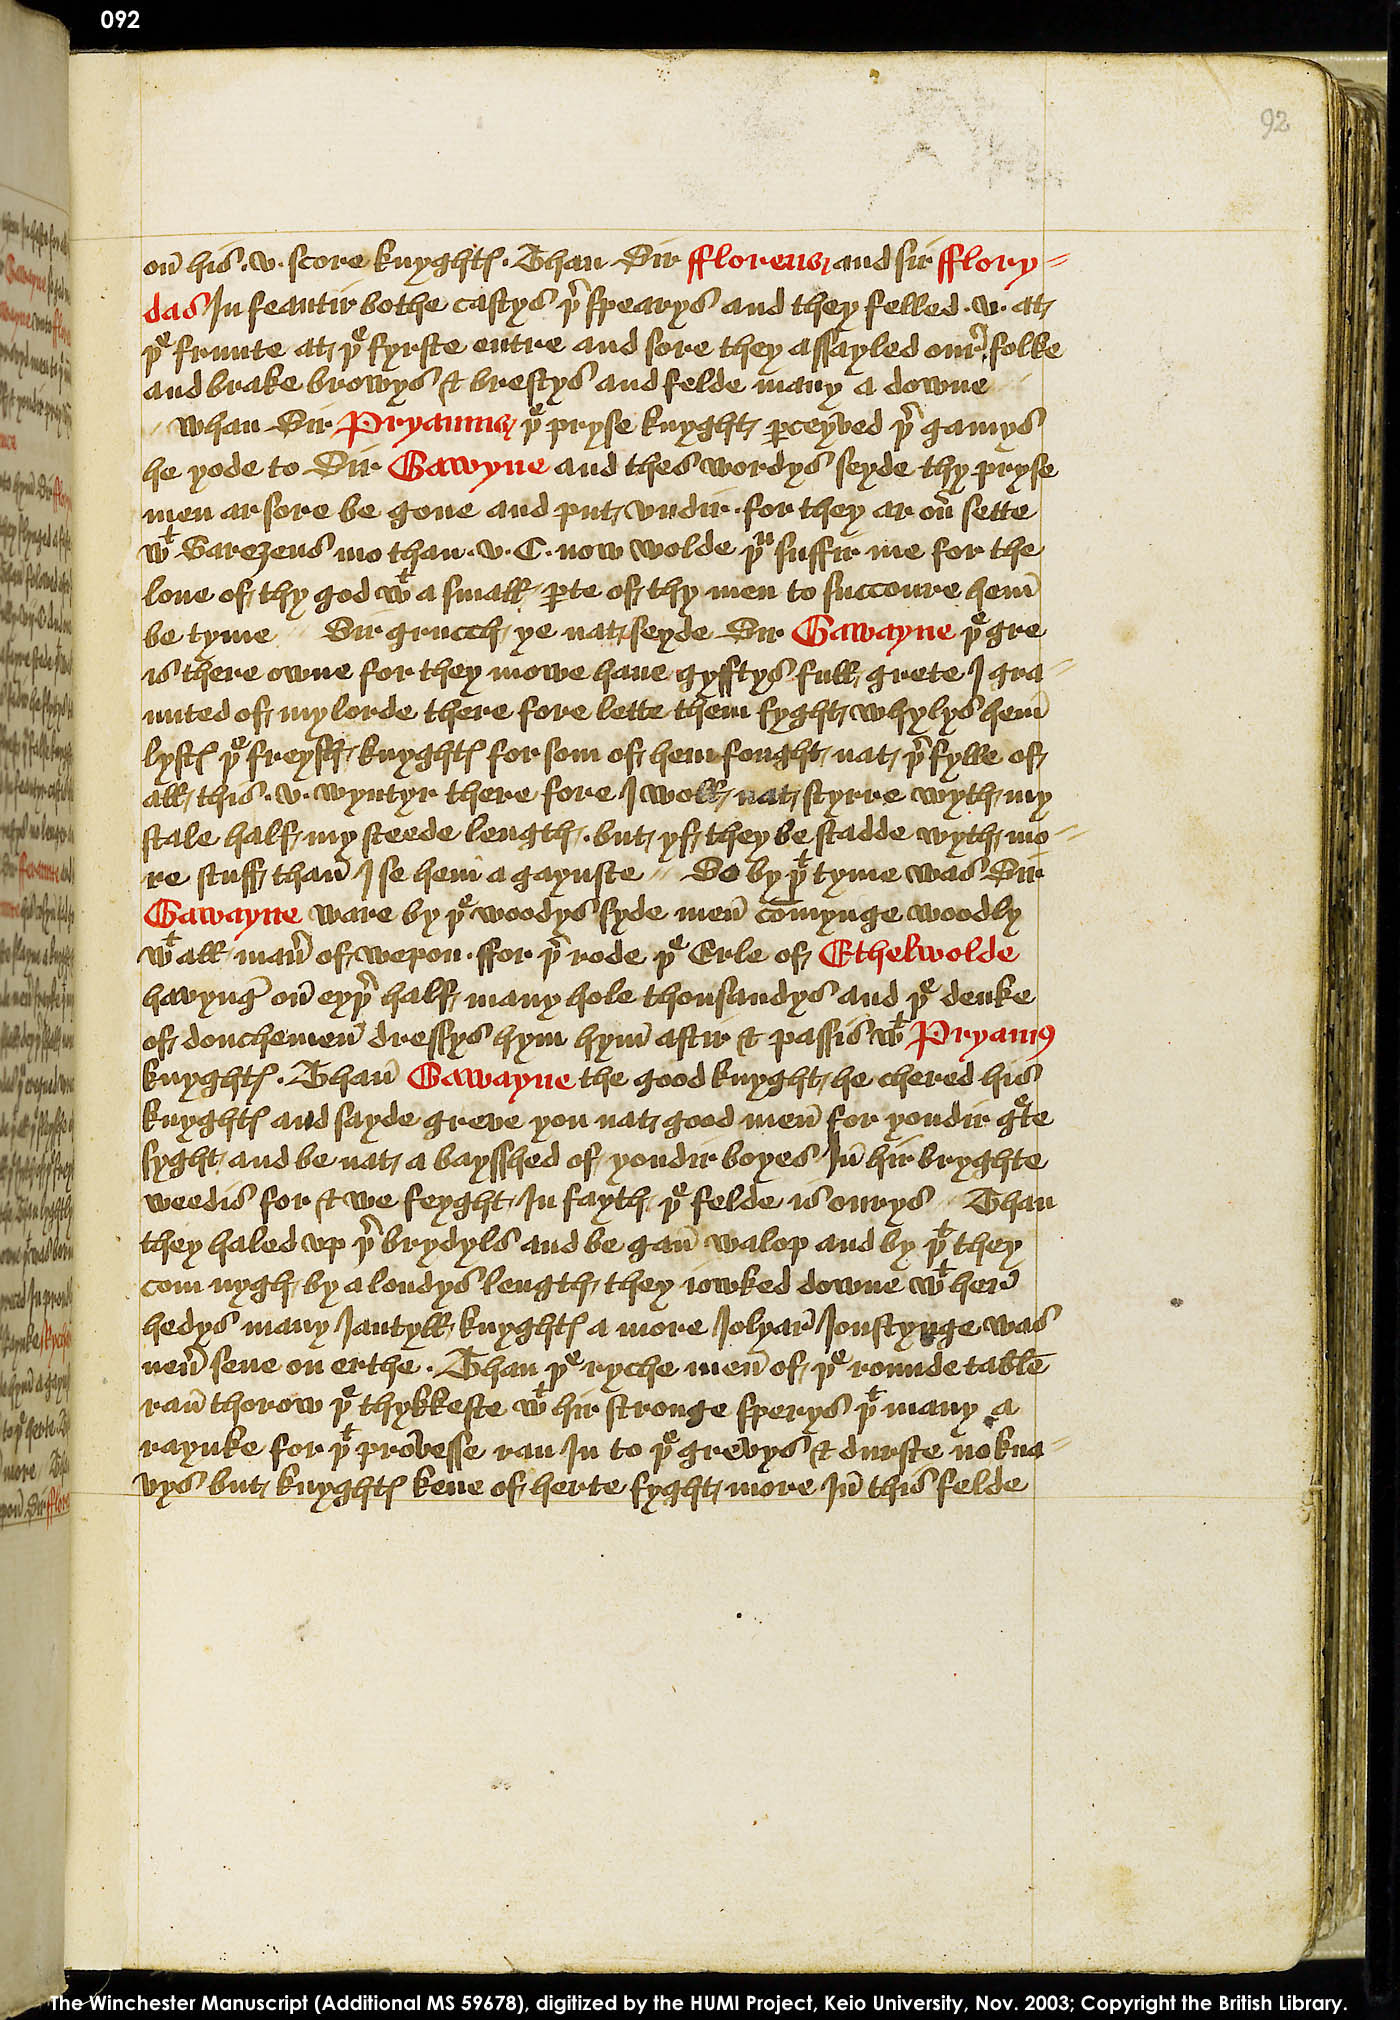 092
92
on̄ his .v. score knyghtꝭ . Than Sir fflorens and sir fflory=
das In feautir bothe castys þr spearys and they felled .v. at
þe frunte at þe fyrste entre and sore they assayled our folke
and brake browys & brestys and felde many a downe
whan Sir Pryamus þe pryse knyght ꝑceyved þr gamys
he yode to Sir Gawyne and thes wordys seyde thy pryse
men ar sore be gone and put vndir for they ar on̄ sette
wt Sarezens mo than .v. C. now wolde þu suffir me for the
love of thy god wt a small ꝑte of thy men to succoure hem̄
be tyme Sir grucch ye nat seyde Sir Gawayne þe gre
is there owne for they mowe have gyfftys full grete I gra=
unted of my lorde there fore lette them fyght whylys hem̄
lystꝭ þe freysh knyghtꝭ for som of hem fought nat þr fylle of
all this .v. wyntyr there fore I woll nat styrre wyth my
stale half my steede length . but yf they be stadde wyth mo=
re stuff than̄ I se hem̄ a gaynste So by þt tyme was Sir
Gawayne ware by þe woodys syde men̄ com̄ynge woodly
wt all man̄ of wepon . ffor þr rode þe Erle of Ethelwolde
havyng on̄ eyþr half many hole thousandys and þe deuke
of douchemen̄ dressys hym hym̄ aftir & passis wt Pryamꝰ
knyghtꝭ . Than̄ Gawayne the good knyght he chered his
knyghtꝭ and sayde greve you nat good men̄ for yondir gte
syght and be nat a baysshed of yondir boyes In̄ hir bryghte
weedis for & we feyght In fayth þe felde is ourys Than
they haled vp þr brydyls and be gan̄ walop and by þt they
com nygh by a londys length they iowked downe wt her̄
hedys many Jantyll knyghtꝭ a more Jolyar̄ Joustynge was
neuer̄ sene on erthe . Than þe ryche men̄ of þe rounde table
ran̄ thorow þe thykkeste wt hir stronge sperys þt many a
raynke for þt provesse ran In to þe grevys & durste no kna=
vys but knyghtꝭ kene of herte fyght more In̄ this felde
The Winchester Manuscript (Additional MS 59678), digitized by the HUMI Project, Keio University, Nov. 2003; Copyright the British Library.